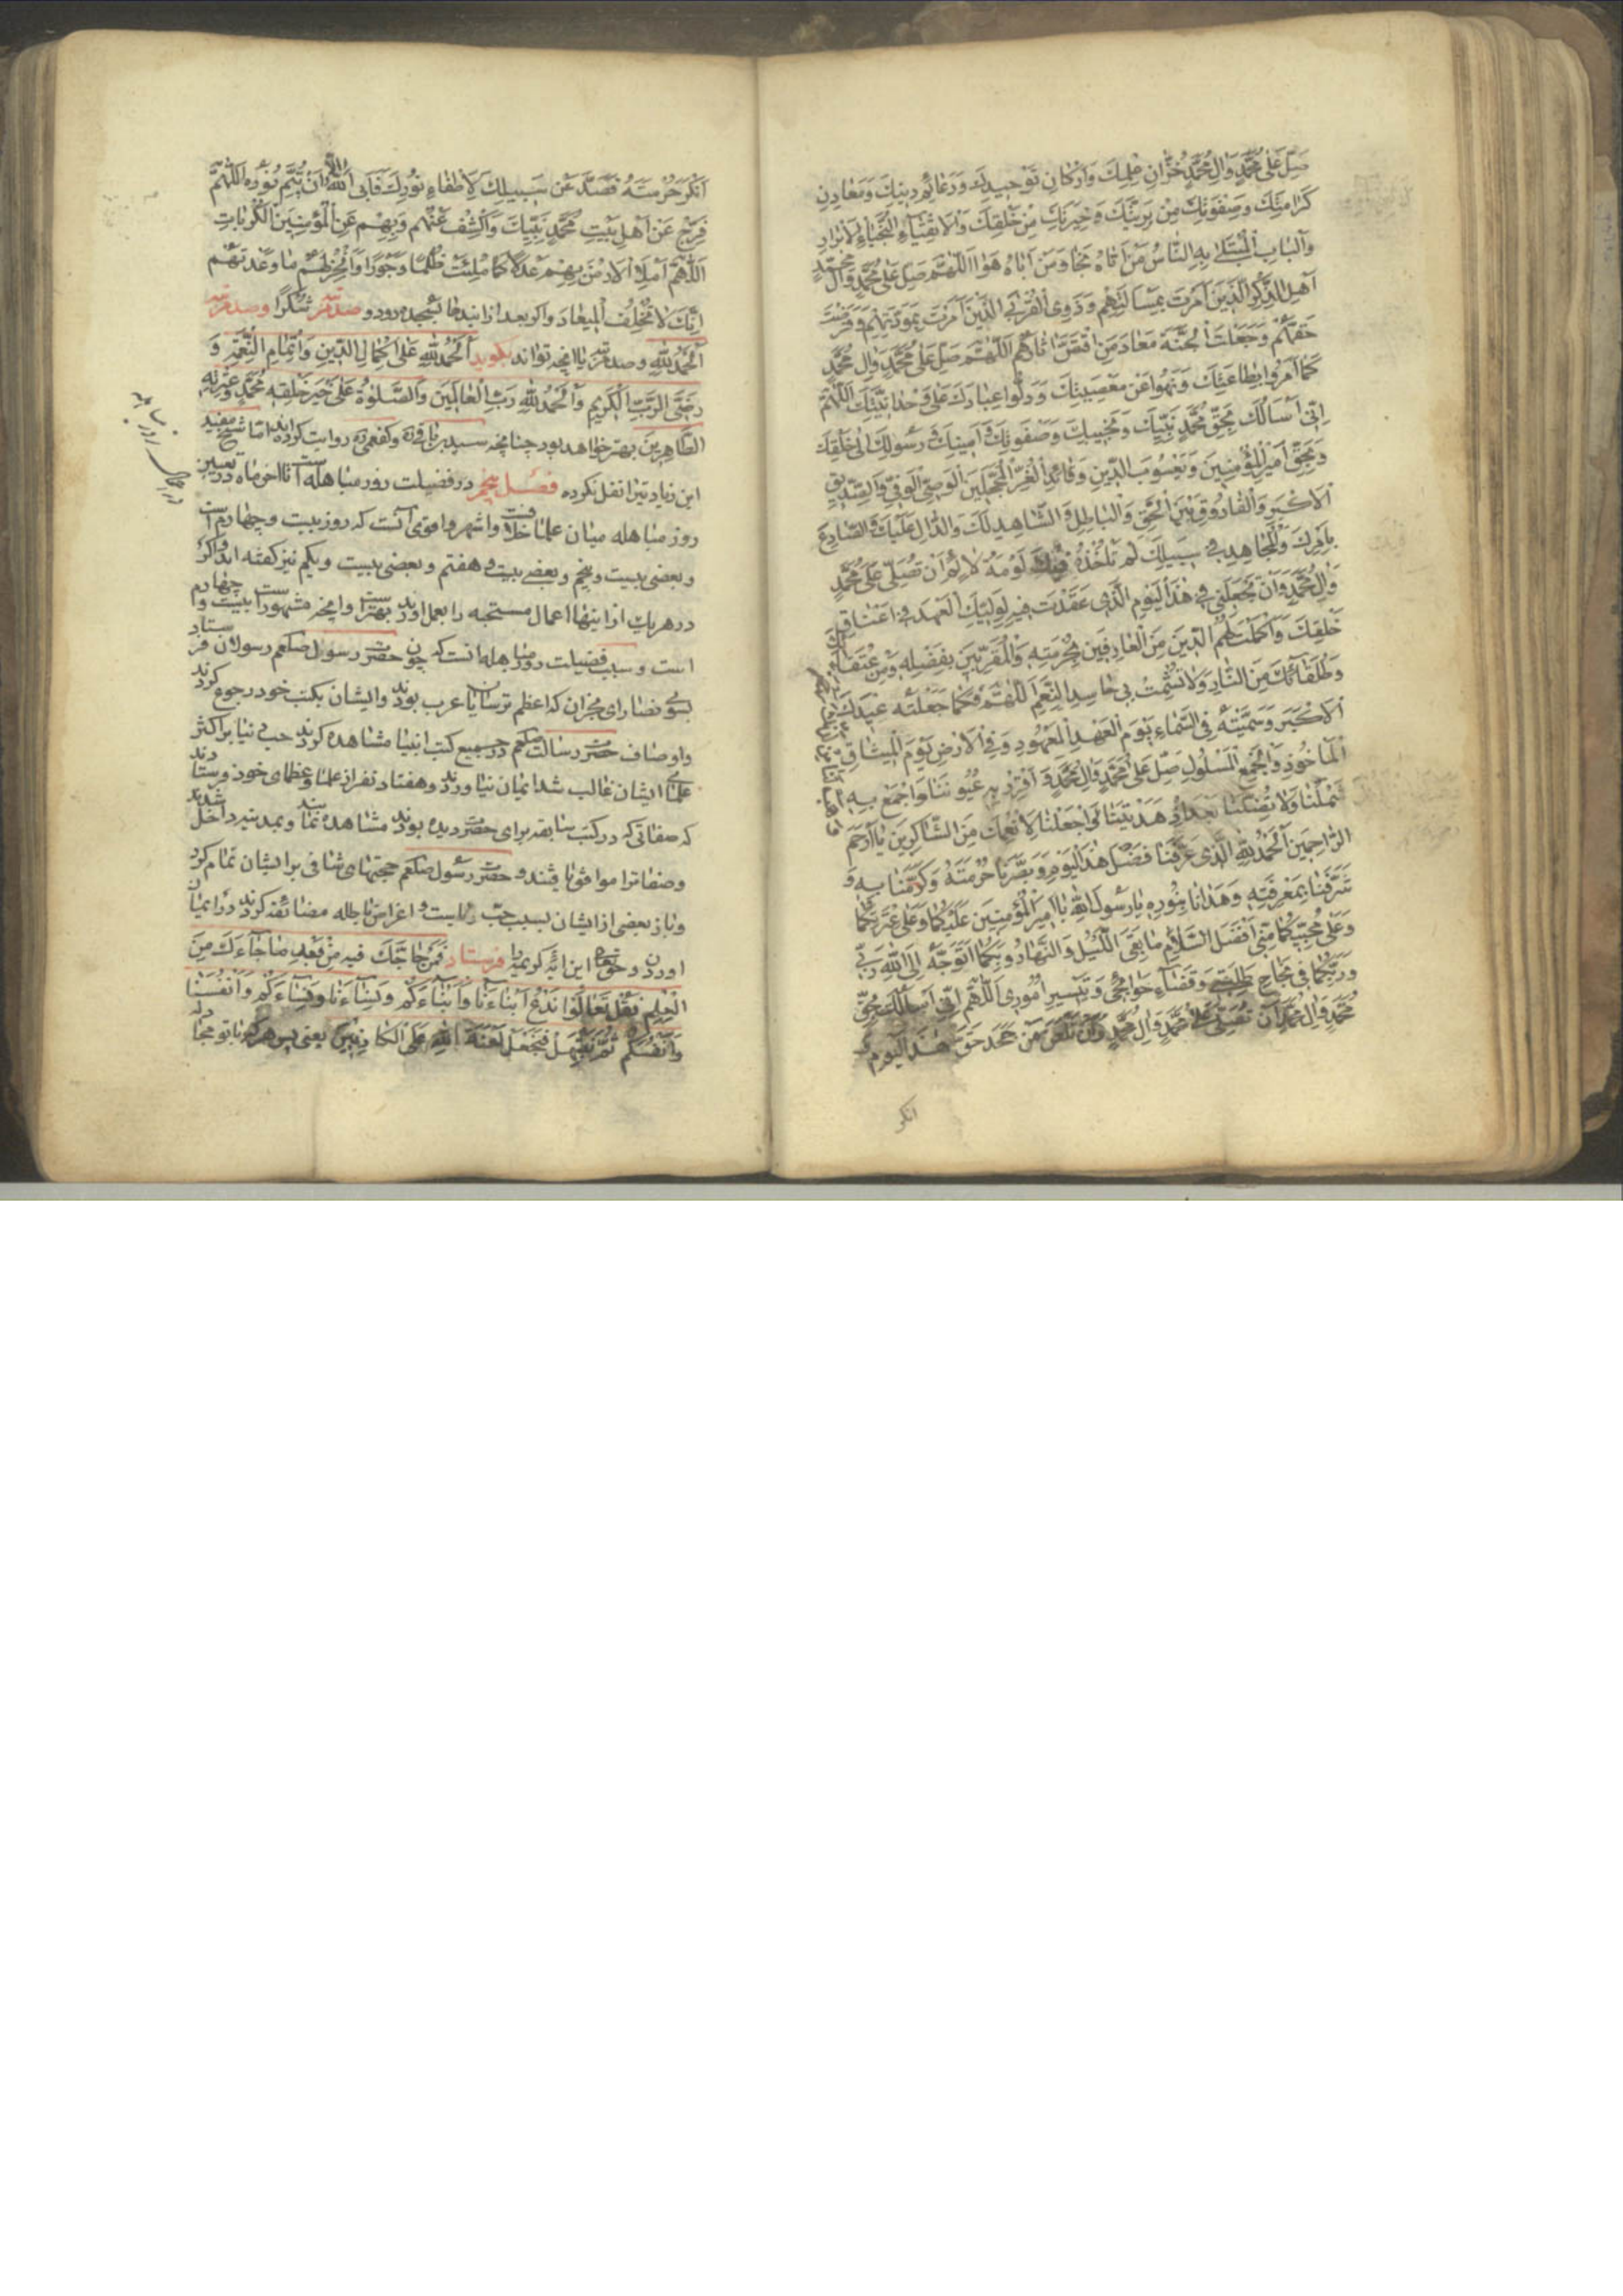 صَلِّ عَلىٰ مُحَمَّدٍ وَاٰلِ مُحَمَّدٍ خُزّٰانِ عِلْمِكَ وَاَرْكٰانِ تَوْحيدِكَ وَدَعٰائِمِ دينِكَ وَمَعٰادِنِ
كَرٰامَتِكَ وَصَفْوَتِكَ مِنْ بَرِيَّتِكَ وَخِيَرَتِكَ مِنْ خَلْقِكَ وَالْاَتْقِيٰاءِ النُّجَبٰاءِ الْاَبْرٰارِ
وَالْبٰابِ الْمُبْتَلىٰ بِهِ النّٰاسُ مَنْ اَتٰاهُ نَجٰا وَمَنْ اَبٰاهُ هَوٰى اَللّٰهُمَّ صَلِّ عَلىٰ مُحَمَّدٍ وَاٰلِ مُحَمَّدٍ
اَهْلِ الذِّكْرِ الَّذينَ اَمَرْتَ بِمَسْأَلَتِهِمْ وَذَوِى الْقُرْبىٰ الَّذينَ اَمَرْتَ بِمَوَدَّتِهِمْ وَفَرَضْتَ
حَقَّهُمْ وَجَعَلْتَ الْجَنَّةَ مَعٰادَ مَنِ اقْتَصَّ اٰثٰارَهُمْ اَللّٰهُمَّ صَلِّ عَلىٰ مُحَمَّدٍ وَاٰلِ مُحَمَّدٍ
كَمٰا اَمَرُوا بِطٰاعَتِكَ وَنَهَوْا عَنْ مَعْصِيَتِكَ وَدَلُّوا عِبٰادَكَ عَلىٰ وَحْدٰانِيَّتِكَ اَللّٰهُمَّ
اِنّى اَسْأَلُكَ بِحَقِّ مُحَمَّدٍ نَبِيِّكَ وَنَجيبِكَ وَصَفْوَتِكَ وَاَمينِكَ وَرَسُولِكَ اِلىٰ خَلْقِكَ
وَبِحَقِّ اَميرِ الْمُؤْمِنينَ وَيَعْسُوبِ الدّينِ وَقٰائِدِ الْغُرِّ الْمُحَجَّلينَ الْوَصِىِّ الْوَفِىِّ وَالصِّدّيقِ
الْاَكْبَرِ وَالْفٰارُوقِ بَيْنَ الْحَقِّ وَالْبٰاطِلِ وَالشّٰاهِدِ لَكَ وَالدّٰالِّ عَلَيْكَ وَالصّٰادِعِ
بِاَمْرِكَ وَالْمُجٰاهِدِ فى سَبيلِكَ لَمْ تَأْخُذْهُ فيكَ لَوْمَةُ لٰائِمٍ اَنْ تُصَلِّىَ عَلىٰ مُحَمَّدٍ
وَاٰلِ مُحَمَّدٍ وَاَنْ تَجْعَلَنى فى هٰذَا الْيَوْمِ الَّذى عَقَدْتَ فيهِ لِوَلِيِّكَ الْعَهْدَ فى اَعْنٰاقِ
خَلْقِكَ وَاَكْمَلْتَ لَهُمُ الدّينَ مِنَ الْعٰارِفينَ بِحُرْمَتِهِ وَالْمُقِرّينَ بِفَضْلِهِ وَمِنْ عُتَقٰائِكَ
وَطُلَقٰائِكَ مِنَ النّٰارِ وَلٰا تُشْمِتْ بى حٰاسِدِى النِّعَمِ اَللّٰهُمَّ فَكَمٰا جَعَلْتَهُ عيدَكَ
الْاَكْبَرَ وَسَمَّيْتَهُ فِى السَّمٰاءِ يَوْمَ الْعَهْدِ الْمَعْهُودِ وَفِى الْاَرْضِ يَوْمَ الْميثٰاقِ
الْمَأْخُوذِ وَالْجَمْعِ الْمَسْئُولِ صَلِّ عَلىٰ مُحَمَّدٍ وَاٰلِ مُحَمَّدٍ وَاَقْرِرْ بِهِ عُيُونَنٰا وَاجْمَعْ بِهِ
شَمْلَنٰا وَلٰا تُضِلَّنٰا بَعْدَ اِذْ هَدَيْتَنٰا وَاجْعَلْنٰا لِاَنْعُمِكَ مِنَ الشّٰاكِرينَ يٰا اَرْحَمَ
الرّٰاحِمينَ اَلْحَمْدُ لِلّٰهِ الَّذى عَرَّفَنٰا فَضْلَ هٰذَا الْيَوْمِ وَبَصَّرَنٰا حُرْمَتَهُ وَكَرَّمَنٰا بِهِ وَ
شَرَّفَنٰا بِمَعْرِفَتِهِ وَهَدٰانٰا بِنُورِهِ يٰا رَسُولَ اللّٰهِ يٰا اَميرَ الْمُؤْمِنينَ عَلَيْكُمٰا وَعَلىٰ عِتْرَتِكُمٰا
وَعَلىٰ مُحِبّيكُمٰا مِنّى اَفْضَلُ السَّلٰامِ مٰا بَقِىَ اللَّيْلُ وَالنَّهٰارُ وَبِكُمٰا اَتَوَجَّهُ اِلَى اللّٰهِ رَبّى
وَرَبِّكُمٰا فى نَجٰاحِ طَلِبَتى وَقَضٰاءِ حَوٰائِجى وَتَيْسيرِ اُمُورى اَللّٰهُمَّ اِنّى اَسْأَلُكَ بِحَقِّ
مُحَمَّدٍ وَاٰلِ مُحَمَّدٍ اَنْ تُصَلِّىَ عَلىٰ مُحَمَّدٍ وَاٰلِ مُحَمَّدٍ وَاَنْ تَلْعَنَ مَنْ جَحَدَ حَقَّ هٰذَا الْيَوْمِ وَ
انكر
اَنْكَرَ حُرْمَتَهُ فَصَدَّ عَنْ سَبيلِكَ لِاِطْفٰاءِ نُورِكَ فَاَبَى اللّٰهُ اِلّٰا اَنْ يُتِمَّ نُورَهُ اَللّٰهُمَّ
فَرِّجْ عَنْ اَهْلِ بَيْتِ مُحَمَّدٍ نَبِيِّكَ وَاكْشِفْ عَنْهُمْ وَبِهِمْ عَنِ الْمُؤْمِنينَ الْكُرُبٰاتِ
اَللّٰهُمَّ امْلَاِ الْاَرْضَ بِهِمْ عَدْلًا كَمٰا مُلِئَتْ ظُلْمًا وَجَوْرًا وَاَنْجِزْ لَهُمْ مٰا وَعَدْتَهُمْ
اِنَّكَ لٰا تُخْلِفُ الْميعٰادَ واكر بعد ازانيدعا بسجده رود و صد مرتبه شُكْرًا وصد مرتبه
اَلْحَمْدُ لِلّٰهِ وصد مرتبه ياانچه تواند بكويد اَلْحَمْدُ لِلّٰهِ عَلىٰ اِكْمٰالِ الدّينِ وَاِتْمٰامِ النِّعْمَةِ وَ
رِضَى الرَّبِّ الْكَريمِ وَالْحَمْدُ لِلّٰهِ رَبِّ الْعٰالَمينَ وَالصَّلٰوةُ عَلىٰ خَيْرِ خَلْقِهِ مُحَمَّدٍ وَعِتْرَتِهِ
الطّٰاهِرينَ بهتر خواهد بود چنانچه سيد بن باقى ره وكفعمى ره روايت كرده‌اند اما شيخ مفيد
اين زيادتيرا نقل نكرده فصل پنجم در فضيلت روز مباهله است تا اخر ماه در تعيين
روز مباهله ميان علما خلافست واشهر واقوى آنست كه روز بيست وچهارم است
وبعضى بيست وپنجم وبعضى بيست وهفتم وبعضى بيست ويكم نيز كفته‌اند واكر
در هريك ازاينها اعمال مستحبه را بعمل اورند بهتر است وانچه مشهور است بيست وچهارم
است وسبب فضيلت روز مباهله انست كه چون حضرت رسول صلعم رسولان فرستاد
بسوى نصاراى نجران كه اعظم ترسايان عرب بودند وايشان بكتب خود رجوع كردند
واوصاف حضرت رسالت صلعم در جميع كتب انبيا مشاهده كردند حب دنيا بر اكثر
علماى ايشان غالب شد ايمان نياوردند وهفتاد نفر از علما وعظماى خود فرستادند
كه صفاتى كه در كتب سابقه براى حضرت ديده بودند مشاهده نمايند وبمدينه داخل شدند
وصفاترا موافق يافتند و حضرت رسول صلعم حجتهاى شافى بر ايشان تمام كرد
وباز بعضى از ايشان بسبب حب رياست واغراض باطله مضائقه كردند در ايمان
اوردن وحق تعالى اين ايه كريمه را فرستاد فَمَنْ حٰاجَّكَ فيهِ مِنْ بَعْدِ مٰا جٰاءَكَ مِنَ
الْعِلْمِ فَقُلْ تَعٰالَوْا نَدْعُ اَبْنٰاءَنٰا وَاَبْنٰاءَكُمْ وَنِسٰاءَنٰا وَنِسٰاءَكُمْ وَاَنْفُسَنٰا
وَاَنْفُسَكُمْ ثُمَّ نَبْتَهِلْ فَنَجْعَلْ لَعْنَةَ اللّٰهِ عَلَى الْكٰاذِبينَ يعنى پس هركه با تو مجادله
در اعمال روز مباهله